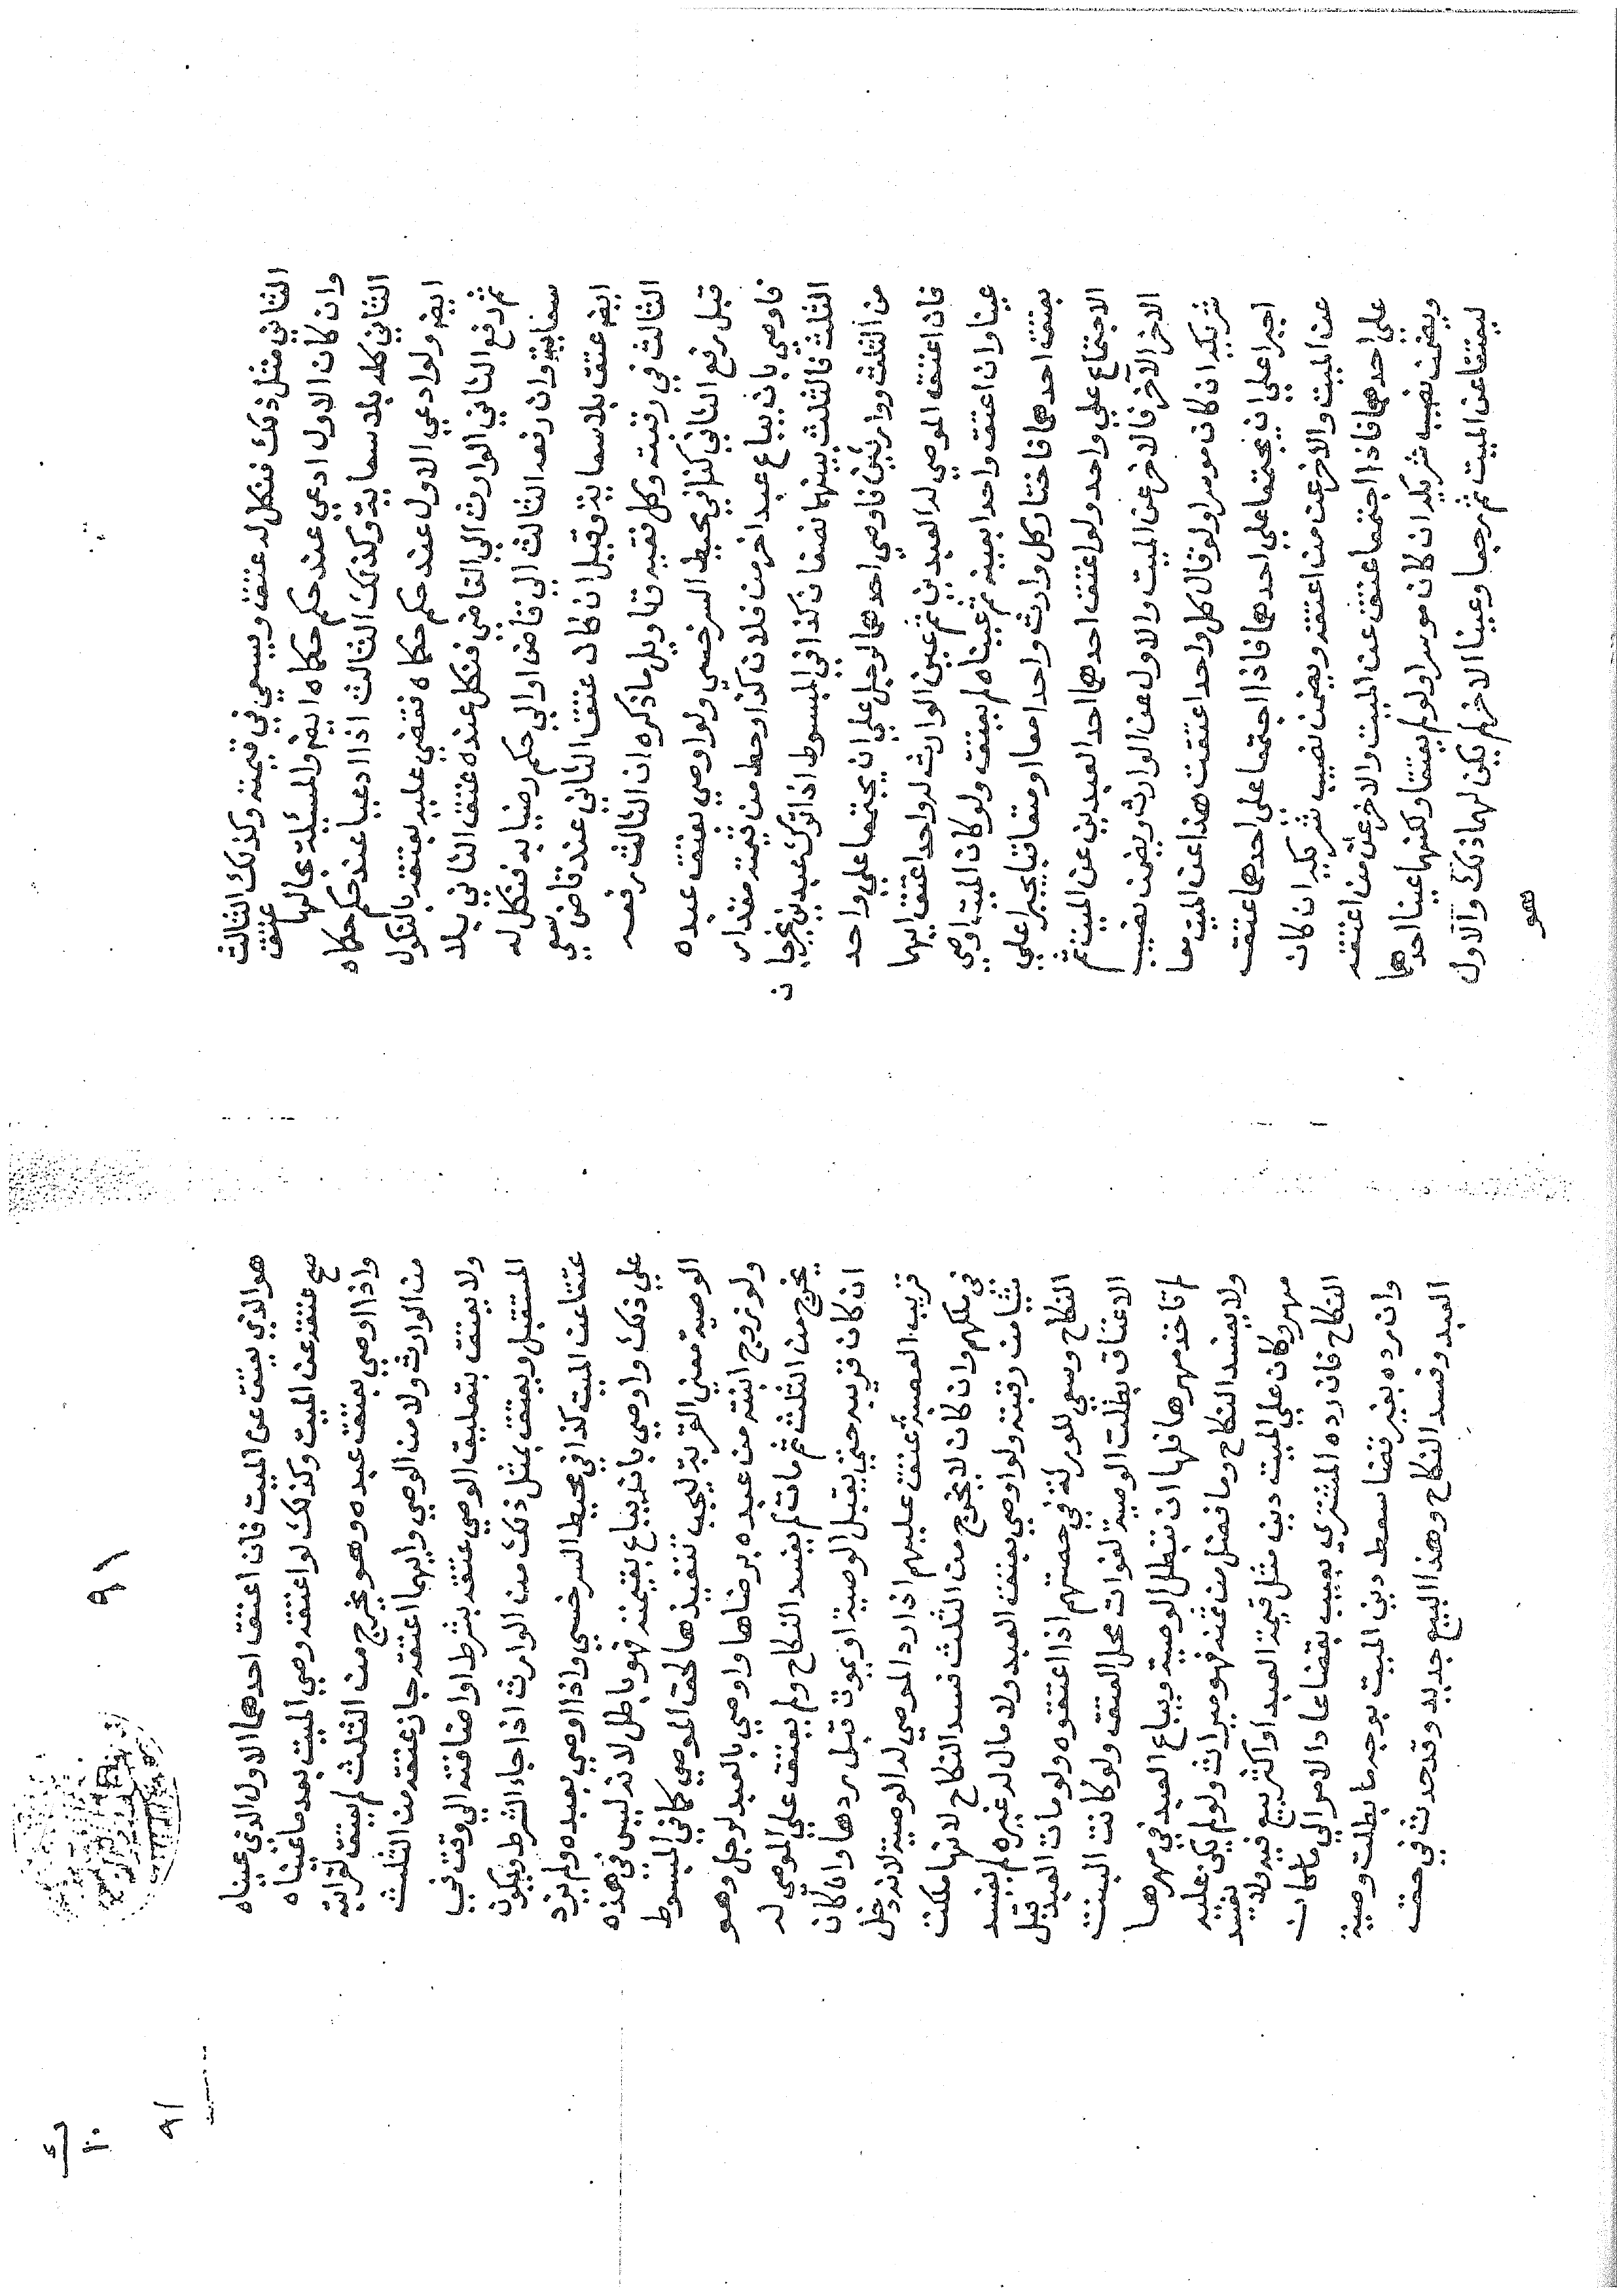 الثاني مثل ذلك فنكل له عتق ويسعي في قيمته وكذلك الثالث
وان كان الاول ادعي عند حكم حكماه ايضا والمسئلة بحالها عتق
الثاني كله بلا سعاية وكذلك الثالث اذا ادعيا عند حكم حكماه
ايضا ولو ادعي الاول عند حكم حكماه فقضي عليه بعتقه بالنكول
ثم رفع الثاني الوارث الي القاضي فنكل عنده عتق الثاني بلا
سعاية وان رفعه الثالث الي قاض او الي حكم رضيا به فنكل له
ايضا عتق بلا سعاية وقيل ان كان عتق الثاني عند قاض سعي
الثالث في رقبته وكل فقيه تاويل ما ذكره ان الثالث رفعه
قبل رفع الثاني كذا في محيط السرخسي ولو اوصي بعتق عبده
فاوصي بان يباع عبدا اخر من فلان كذا وحط من قيمته مقدار
الثلث فالثلث بينهما نصفان كذا في المبسوط اذا ترك عبدين يخرجان
من الثلث ووارثين فاوصي احدهما لرجل علي ان يجتمعا علي واحد
فان اعتقه الموصي له العبدين ثم عين الوارث له واحد اعتق ايهما
عينا وان اعتق واحدا بعينه ثم عيناه لم يعتق ولو كان الميت اوصي
بعتق احدهما فاختار كل وارث واحدا معا او متعاقبا يجبر اعلي
الاجتماع علي واحد ولو اعتق احدهما احد العبدين عن الميت ثم
الاخر الآخر فالاخر عن الميت والاول عن الوارث ويضمن نصيب
شريكه ان كان موسرا ولو قال كل واحد اعتقت هذا عن الميت معا
اجبرا علي ان يجتمعا علي احدهما فاذا اجتمعا علي احدهما عتق
عن الميت والاخر عن من اعتقه ويضمن نصيب شريكه ان كان
علي احدهما فاذا اجتمعا عتق عن الميت والاخر عن من اعتقه
ويضمن نصيب شريكه ان كان موسرا ولو لم يعتقا ولكنهما عينا احدهما
ليعتقا عن الميت ثم رجعا وعينا الاخر لم يكن لهما ذلك والاول
هو
٩١
هو الذي يعتق عن الميت فان اعتق احدهما الاول الذي عيناه
صح عتقه عن الميت وكذلك لو اعتقه وصي الميت بعد ما عيناه
واذا اوصي بعتق عبده وهو يخرج من الثلث لم يعتق لقرابته
من الوارث ولا من الوصي وايهما اعتقه جاز عتقه من الثلث
ولا يعتق بتعليق الوصي عتقه بشرط او اضافته الي وقت في
المستقبل ويعتق بمثل ذلك من الوارث اذا جاء الشرط ويكون
عتقا عن الميت كذا في محيط السرخسي واذا اوصي بعبده ولم يزد
علي ذلك او اوصي بانه يباع بقيمته فهو باطل لانه ليس في هذه
الوصية معني القربة ليجب تنفيذها لحق الموصي كما في المبسوط
ولو زوج ابنته من عبده برضاها واوصي بالعبد لرجل وهو
يخرج من الثلث ثم مات لم يفسد النكاح ولم يعتق علي الموصي له
ان كان قريبه حتي يقبل الوصية او يموت قبل ردها وان كان
قريب العصبة عتق عليهم اذا رد الموصي له الوصية لانه دخل
في ملكهم وان كان لا يخرج من الثلث فسد النكاح لانها ملكت
شيئا من رقبته ولو اوصي بعتق العبد ولا مال له غيره لم يفسد
النكاح وسعي للورثة في حصتهم اذا اعتقوه ولو مات العبد قبل
الاعتاق بطلت الوصية لفوات محل العتق ولو كانت البنت
لم تاخذ مهرها فلها ان تبطل الوصية ويباع العبد في مهرها
ولا يفسد النكاح وما فضل من ثمنه فهو ميراث ولو لم يكن عليه
مهر وكان علي الميت دين مثل قيمة العبد او اكثر بيع فيه ولا يفسد
النكاح فان رده المشتري بعيب بقضا عاد الامر الي ما كان
وان رده بغير قضا سقط دين الميت بوجه ما بطلت وصية
العبد وفسد النكاح وهذا البيع جديد وقد حدث في حق
٩١
١٠